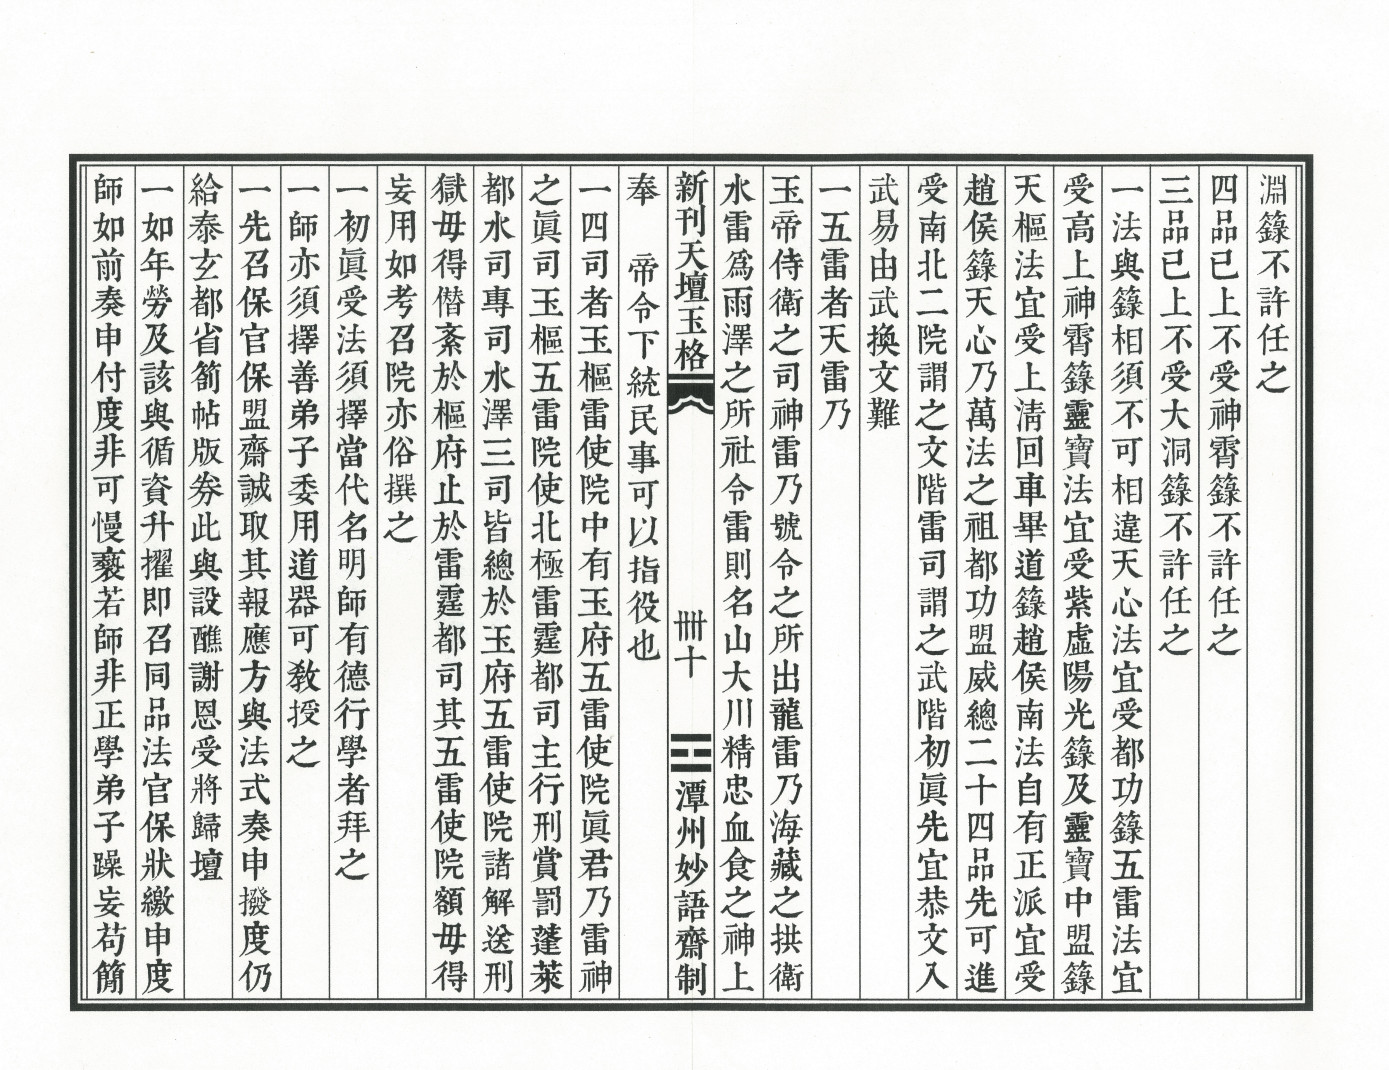 淵籙不許任之
四品己上不受神霄籙不許任之
三品己上不受大洞籙不許任之
一法與籙相須不可相違天心法宜受都功籙五雷法宜
受高上神霄籙靈寶法宜受紫虛陽光籙及靈寶中盟籙
天樞法宜受上淸回車畢道籙趙侯南法自有正派宜受
趙侯籙天心乃萬法之祖都功盟威總二十四品先可進
受南北二院謂之文階雷司謂之武階初眞先宜恭文入
武易由武換文難
一五雷者天雷乃
玉帝侍衛之司神雷乃號令之所出龍雷乃海藏之拱衛
水雷爲雨澤之所社令雷則名山大川精忠血食之神上
新刊天壇玉格
卌十
潭州妙語齋制
奉　帝令下統民事可以指役也
一四司者玉樞雷使院中有玉府五雷使院眞君乃雷神
之眞司玉樞五雷院使北極雷霆都司主行刑賞罰蓬萊
都水司專司水澤三司皆總於玉府五雷使院諸解送刑
獄毋得僭紊於樞府止於雷霆都司其五雷使院額毋得
妄用如考召院亦俗撰之
一初眞受法須擇當代名明師有德行學者拜之
一師亦須擇善弟子委用道器可敎授之
一先召保官保盟齋誠取其報應方與法式奏申撥度仍
給泰玄都省箚帖版劵此與設醮謝恩受將歸壇
一如年勞及該與循資升擢即召同品法官保狀繳申度
師如前奏申付度非可慢褻若師非正學弟子躁妄苟簡